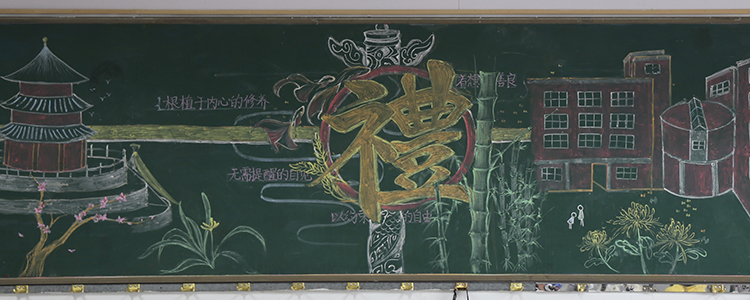 根植于内心的修养
着想 善良
禮
无需提醒的自觉
以约 的自由